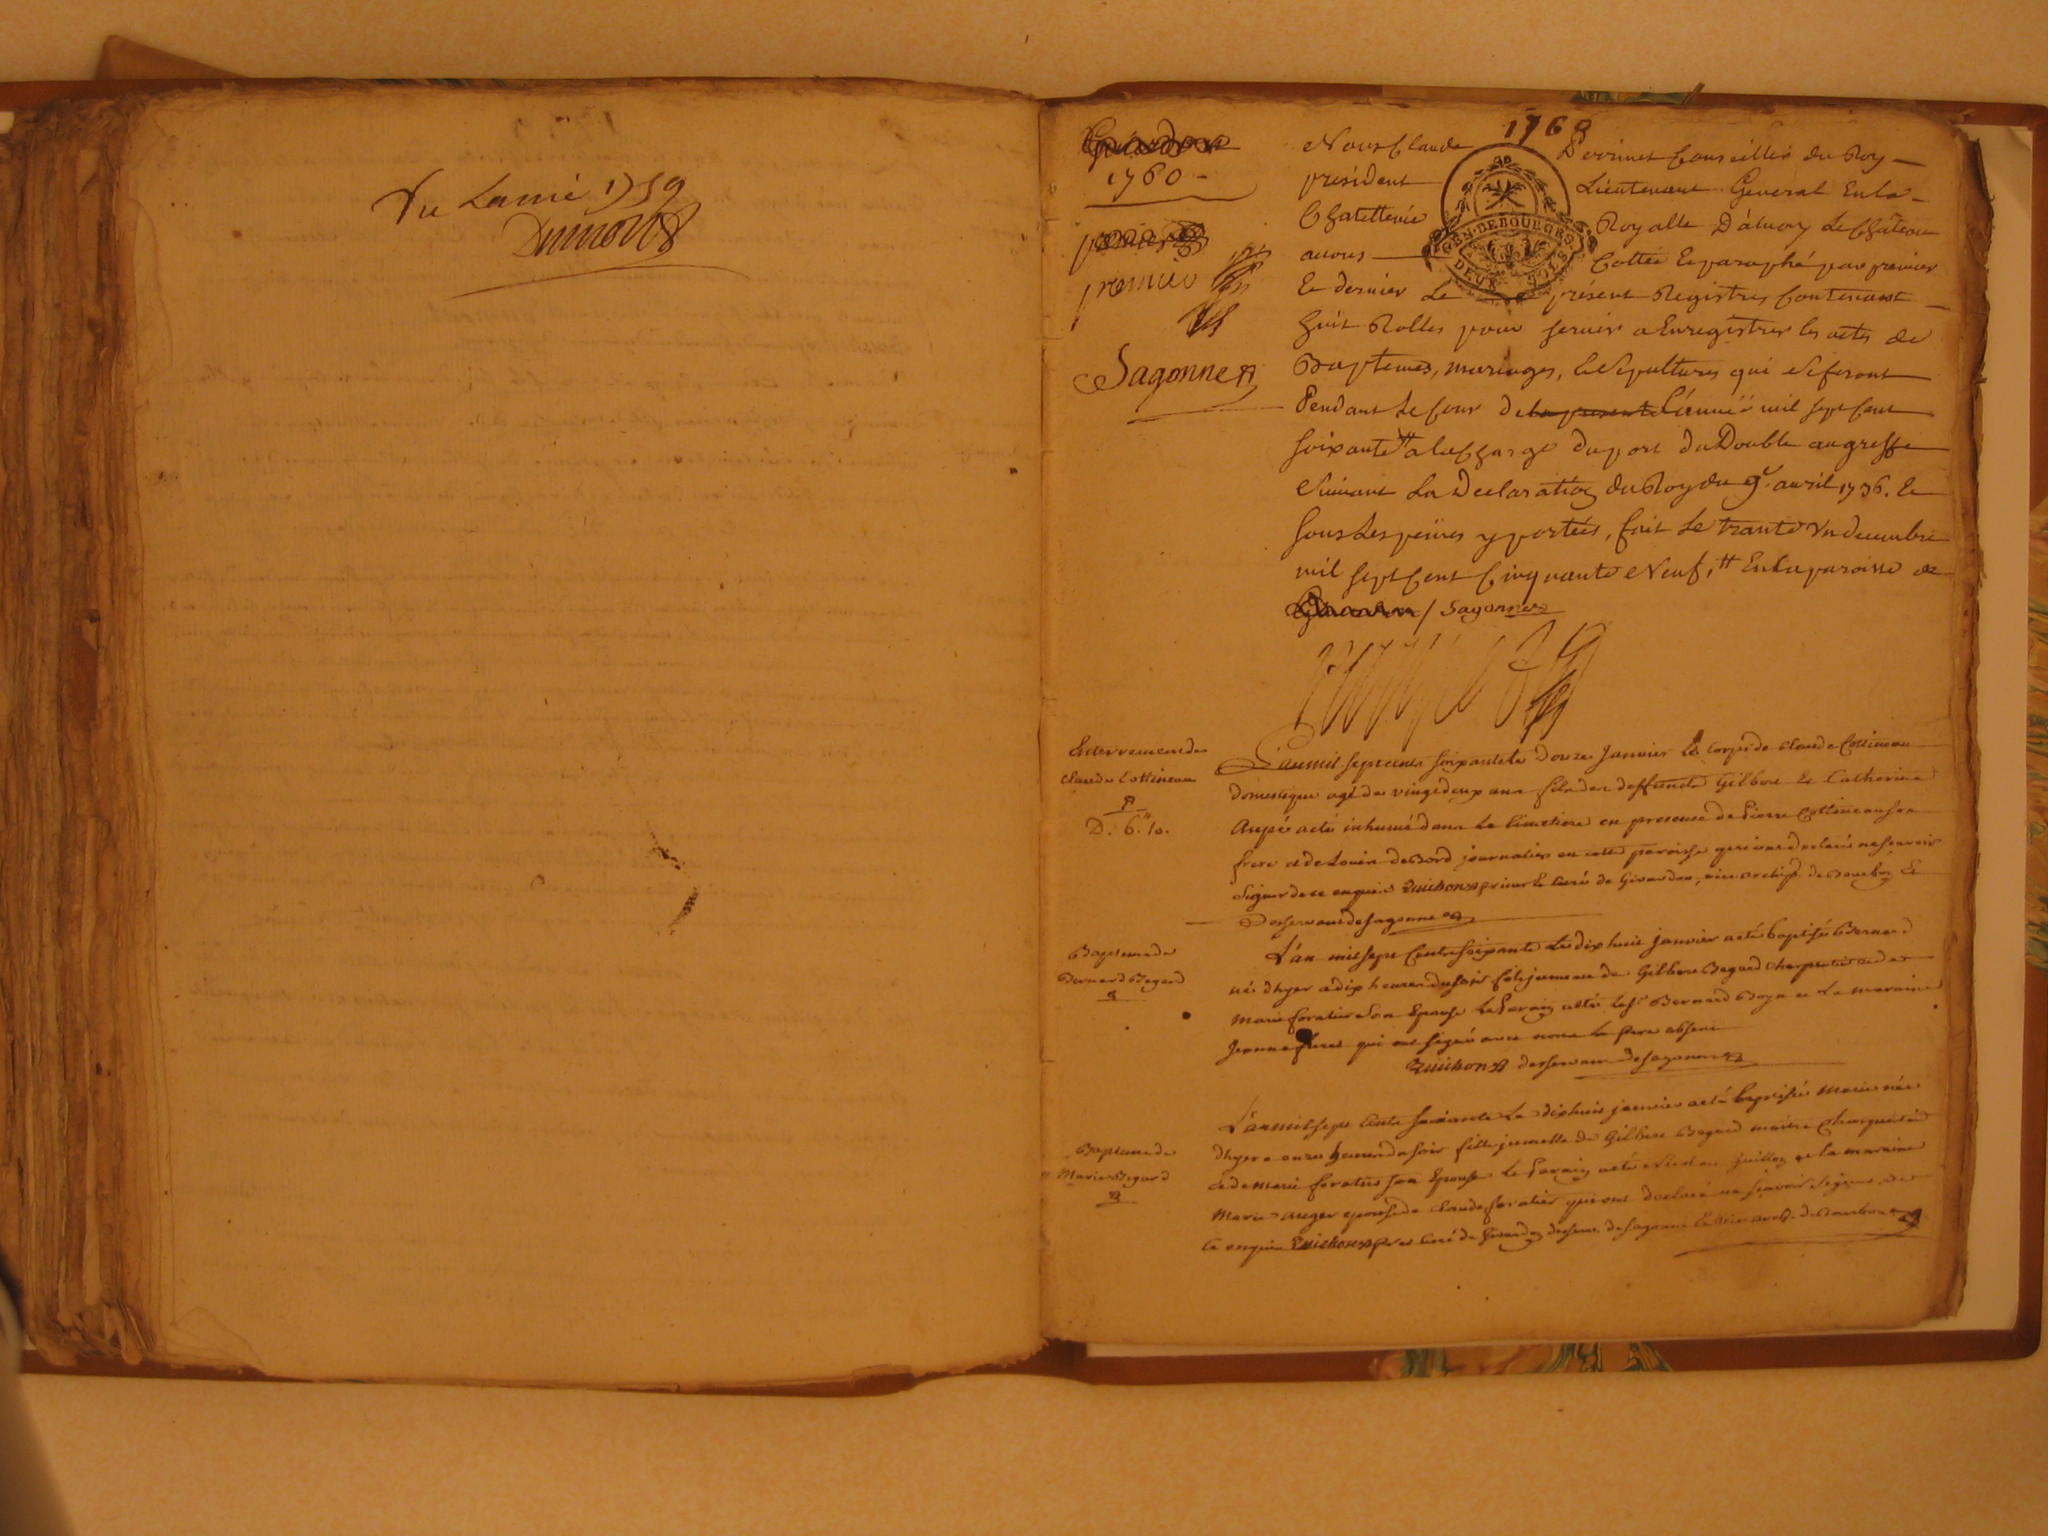 Vu Lanné 1759
1768
1760
premier
Sagonne
Nous Claude Perrinet Conseiller du Roy
président Lieutenant General En la
Chatellenie Royalle D'ainay Le Château
avons Cotté Et paraphé par premier
Et dernier Le présent Registres Contenant
huit Rolles pour servir a Enregistrer les actes de
Baptemes, mariages, & Sepultures qui se feront
Pendant Le Cour de la presente L'année mil sept Cent
soixante a la Charge du port du Double au greffe
suivant La Declaration du Roy du 9e. avril 1736. Et
sous Les peines y portées, fait Le trante Un decembre
mil sept Cent Cinquante Neuf, En la paroisse de
/ Sagonne
GEN. DE BOURGES
DEUX SOLS
Enterrement de
Claude Cottineau
D. 6. 10.
L'an mil sept cents soixante le douze Janvier Le Corps de Claude Cottineau
domestique agé de vingt deux ans fils de deffuncts Gilbert et Catherine
Aupé a eté inhumé dans le Cimetiere en presence de Pierre Cottineau son
frere et de Louis Debord journalier en cette paroisse qui ont declaré ne sçavoir
signer de ce enquis prieur Curé de Givardon, vice archip. de Bourbon Et
Desservant de Sagonne
Bapteme de
Bernard Begard
L'an mil sept Cents soixante Le dix huit janvier a eté baptisé Bernard
né d'hyer a dix heures du soir fils jumeau de Gilbert Begard charpentier et de
Marie foratier son Epouse Le Parain a eté le sr. Bernard et La maraine
Jeanne qui ont signé avec nous Le pere absent
desservant de Sagonne
Bapteme de
Marie Begard
L'an mil sept Cents soixante Le dix huit janvier a eté baptisée Marie née
d'hyer a onze heures du soir fille jumelle de Gilbert Begard maitre charpentier
et de Marie foratier son Epouse Le Parain a eté Nicolas et la maraine
Marie Auger epouse de Claude foratier qui ont declaré ne sçavoir signer de
ce enquis Curé de Givardon desserv. de Sagonne Et vice arch. de Bourbon